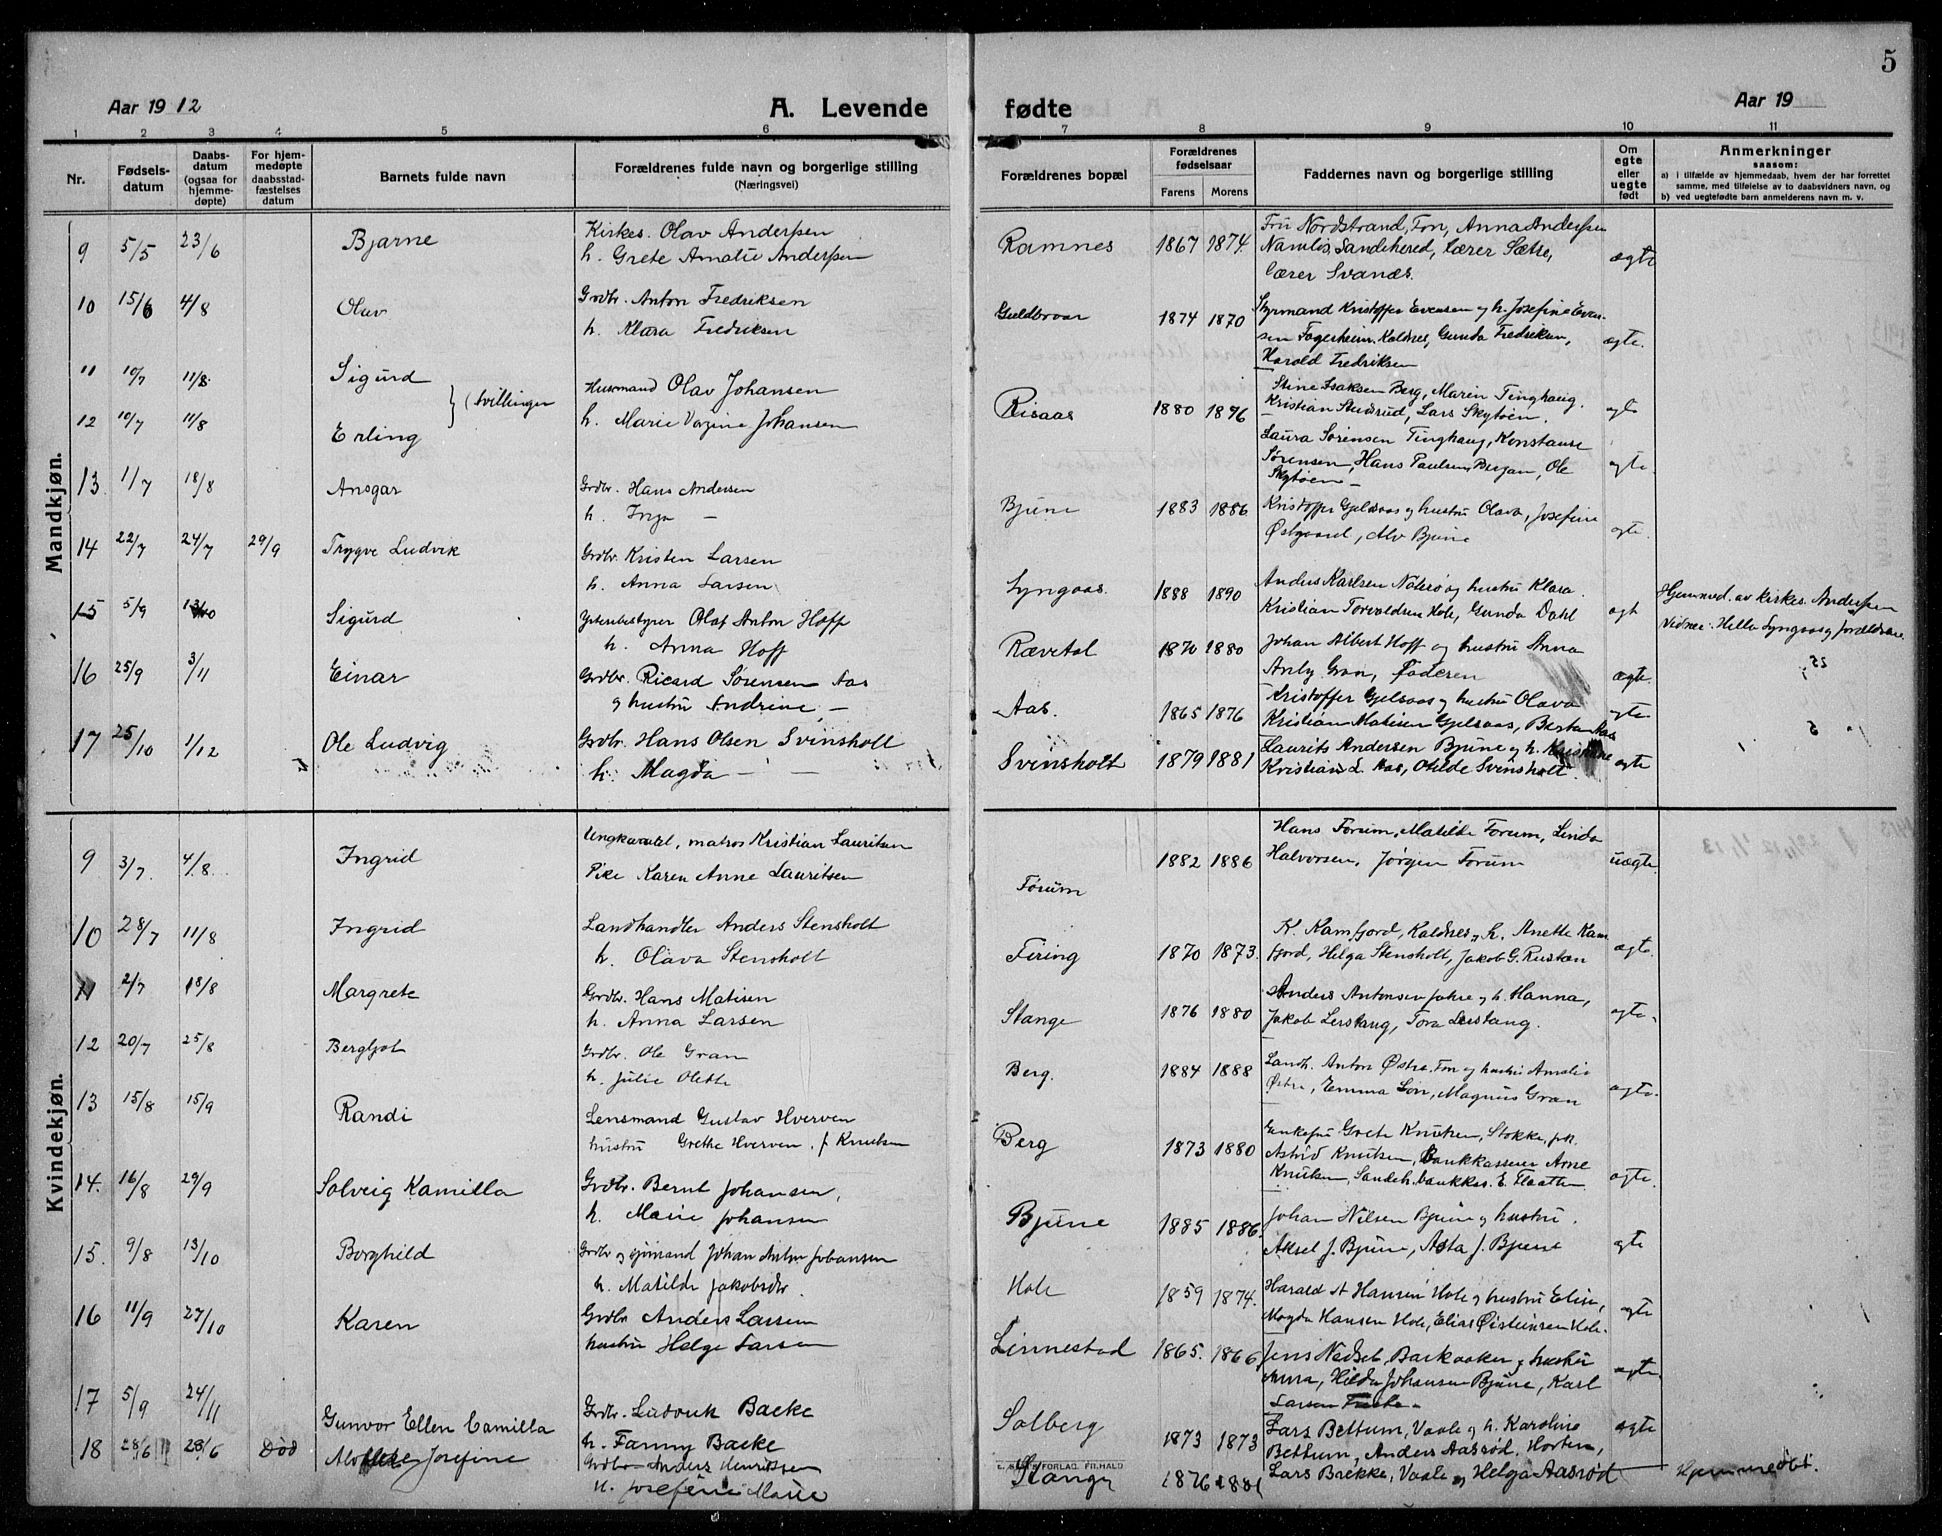 5
Aar 1912
A. Levende fødte
Aar 19
1 2 3 4 5 6 7 8 9 10 11
Nr.
Fødsels-
datum
Daabs-
datum
(ogsaa for
hjemme-
døpte)
For hjem-
medøpte
daabsstad-
fæstelses
datum
Barnets fulde navn
Forældrenes fulde navn og borgerlige stilling
(Næringsvei)
Forældrenes bopæl
Forældrenes
fødselsaar
Farens Morens
Faddernes navn og borgerlige stilling
Om
egte
eller
uegte
født
Anmerkninger
saasom:
a) i tilfælde av hjemmedaab, hvem der har forrettet
samme, med tilføielse av to daabsvidners navn, og
b) ved uegtefødte barn anmelderens navn m. v.
Mandkjøn.
9 5/5 23/6 Bjarne
Kirkes. Olav Anderssen
h. Grete Amalie Anderssen
Ramnes 1867 1874
Fru Nordstrand, Ton, Anna Anderssen
Namlós, Sandeherred, Lærer Sætre,
Lærer Svanæs.
ægte
10 15/6 4/8 Olav
Grdbr. Anton Fredriksen
h. Klara Fredriksen
Guldbraar 1874 1870
Styrmand Kristoffer Evensen og h. Josefine Even-
sen Fagerheim, Kaldnes, Gunda Fredriksen,
Harald Fredriksen
ægte.
11 10/7 11/8 Sigurd
12 10/7 11/8 Erling
(tvillinger
Husmand Olav Johansen
h. Marie Vergine Johansen
Risaas 1880 1876
Stine Isaksen Berg, Marin Tinghaug.
Kristian Studsrud, Lars Skytøen
ægte
Laura Sørensen Tinghaug, Konstanse
Sørensen, Hans Paulsen Bergan, Ole
Skytøen
ægte.
13 1/7 18/8 Ansgar
Grdbr. Hans Andersen
h. Inga —
Bjune 1883 1886
Kristoffer Gjelsaas og hustru Olava, Josefine
Østgaard, Alv Bjune
ægte.
14 22/7 24/7 29/9 Trygve Ludvik
Grdbr. Kristen Larsen
h. Anna Larsen
Lyngaas 1888 1890
Anders Karlsen Nøterø og hustru Klara
Kristian Torvaldsen Hole, Gunda Dahl
ægt
Hjemmed. av kirkes. Anderssen
Vidner: Helle Lyngaas og forældrene
15 5/9 13/10 Sigurd
Ysteribestyrer Olaf Anton Hoff
h. Anna Hoff
Rævetal 1870 1880
Johan Albert Hoff og hustru Anna
Anby Gran, Faderen
ægte
16 25/9 3/11 Einar
Grdbr. Ricard Sørensen Aas
og hustru Andrine —
Aas. 1865 1876
Kristoffer Gjelsaas og hustru Olava
Kristian Matisen Gjelsaas, Berta Aas
ægte
17 25/10 1/12 Ole Ludvig
Grdbr. Hans Olsen Svinsholt
h. Magda — —
Svinsholt 1879 1881
Laurits Andersen Bjune og h. Kristine
Kristian L. Aas, Otilde Svinsholt
ægte
Kvindekjøn.
9 3/7. 4/8. Ingrid
Ungkarl, matros Kristian Lauritsen
Pike Karen Anne Lauritsen
Forum 1882 1886
Hans Forum, Matilde Forum, Linda
Halvorsen, Jørgen Forum
uægte
10 28/7 11/8 Ingrid
Landhandler Anders Stensholt
h. Olava Stensholt
Firing 1870 1873.
K. Kamfjord, Kaldnes, og h. Anette Kam
fjord, Helga Stensholt, Jakob G. Rustan
ægte
11 2/7 18/8 Margrete
Grdbr. Hans Matisen
h. Anna Larsen
Stange 1876 1880
Anders Antonsen Jahre og h. Hanna,
Jakob Lerstang, Tora Lerstang.
ægte
12 20/7 25/8 Bergljot
Grdbr. Ole Gran
h. Julie Olette
Berg. 1884 1888
Landh. Anton Østrø, Ton og hustru Amalie
Østrø, Emma Lon, Magnus Gran
ægte
13 15/8 15/9 Randi
Lensmand Gustav Hverven
hustru Grethe Hverven, f Knutsen
Berg 1873 1880
Enkefru Grete Knutsen, Stokke, frk.
Astrid Knutsen, Bankkasserer Arne
Knutsen, Sandeh. bankkas. E. Flaatten
ægte.
14. 16/8 29/9 Solveig Kamilla
Grdbr. Bernt Johansen,
h. Marie Johansen
Bjune 1885 1886.
Johan Nilsen Bjune og hustru.
Aksel J. Bjune, Asta J. Bjune
ægte
15. 9/8 13/10 Borghild
Grdbr og sjømand Johan Anton Johansen
h. Matilde Jakobsdtr.
Hole 1859 1874.
Harald A Hansen Hole og hustru Elise,
Magda Hansen Hole, Elias Øistensen Hole.
ægte
16 11/9 27/10 Karen
Grdbr Anders Larsen
hustru Helge Larsen
Linnestad 1865. 1866
Jens Nedset, Barkaaker og hustru
Anna, Hilda Johansen Bjune, Karl
Larsen
ægte
17 5/9 24/11 Gunvor Ellen Camilla
Grdbr. Ludvik Bakke
h. Fanny Bakke
Solberg 1873 1873
Lars Bettum, Vaale og h. Karoline
Bettum, Anders Aasrød, Horten,
Lars Brekke, Vaale og Helga Aasrød
ægte
18 28/6 28/6 Død Josefine
Grdbr Anders Henriksen
h. Josefine Marie
Stange 1876 1881
Hjemmedøbt.
FORLAG. FR.HALD